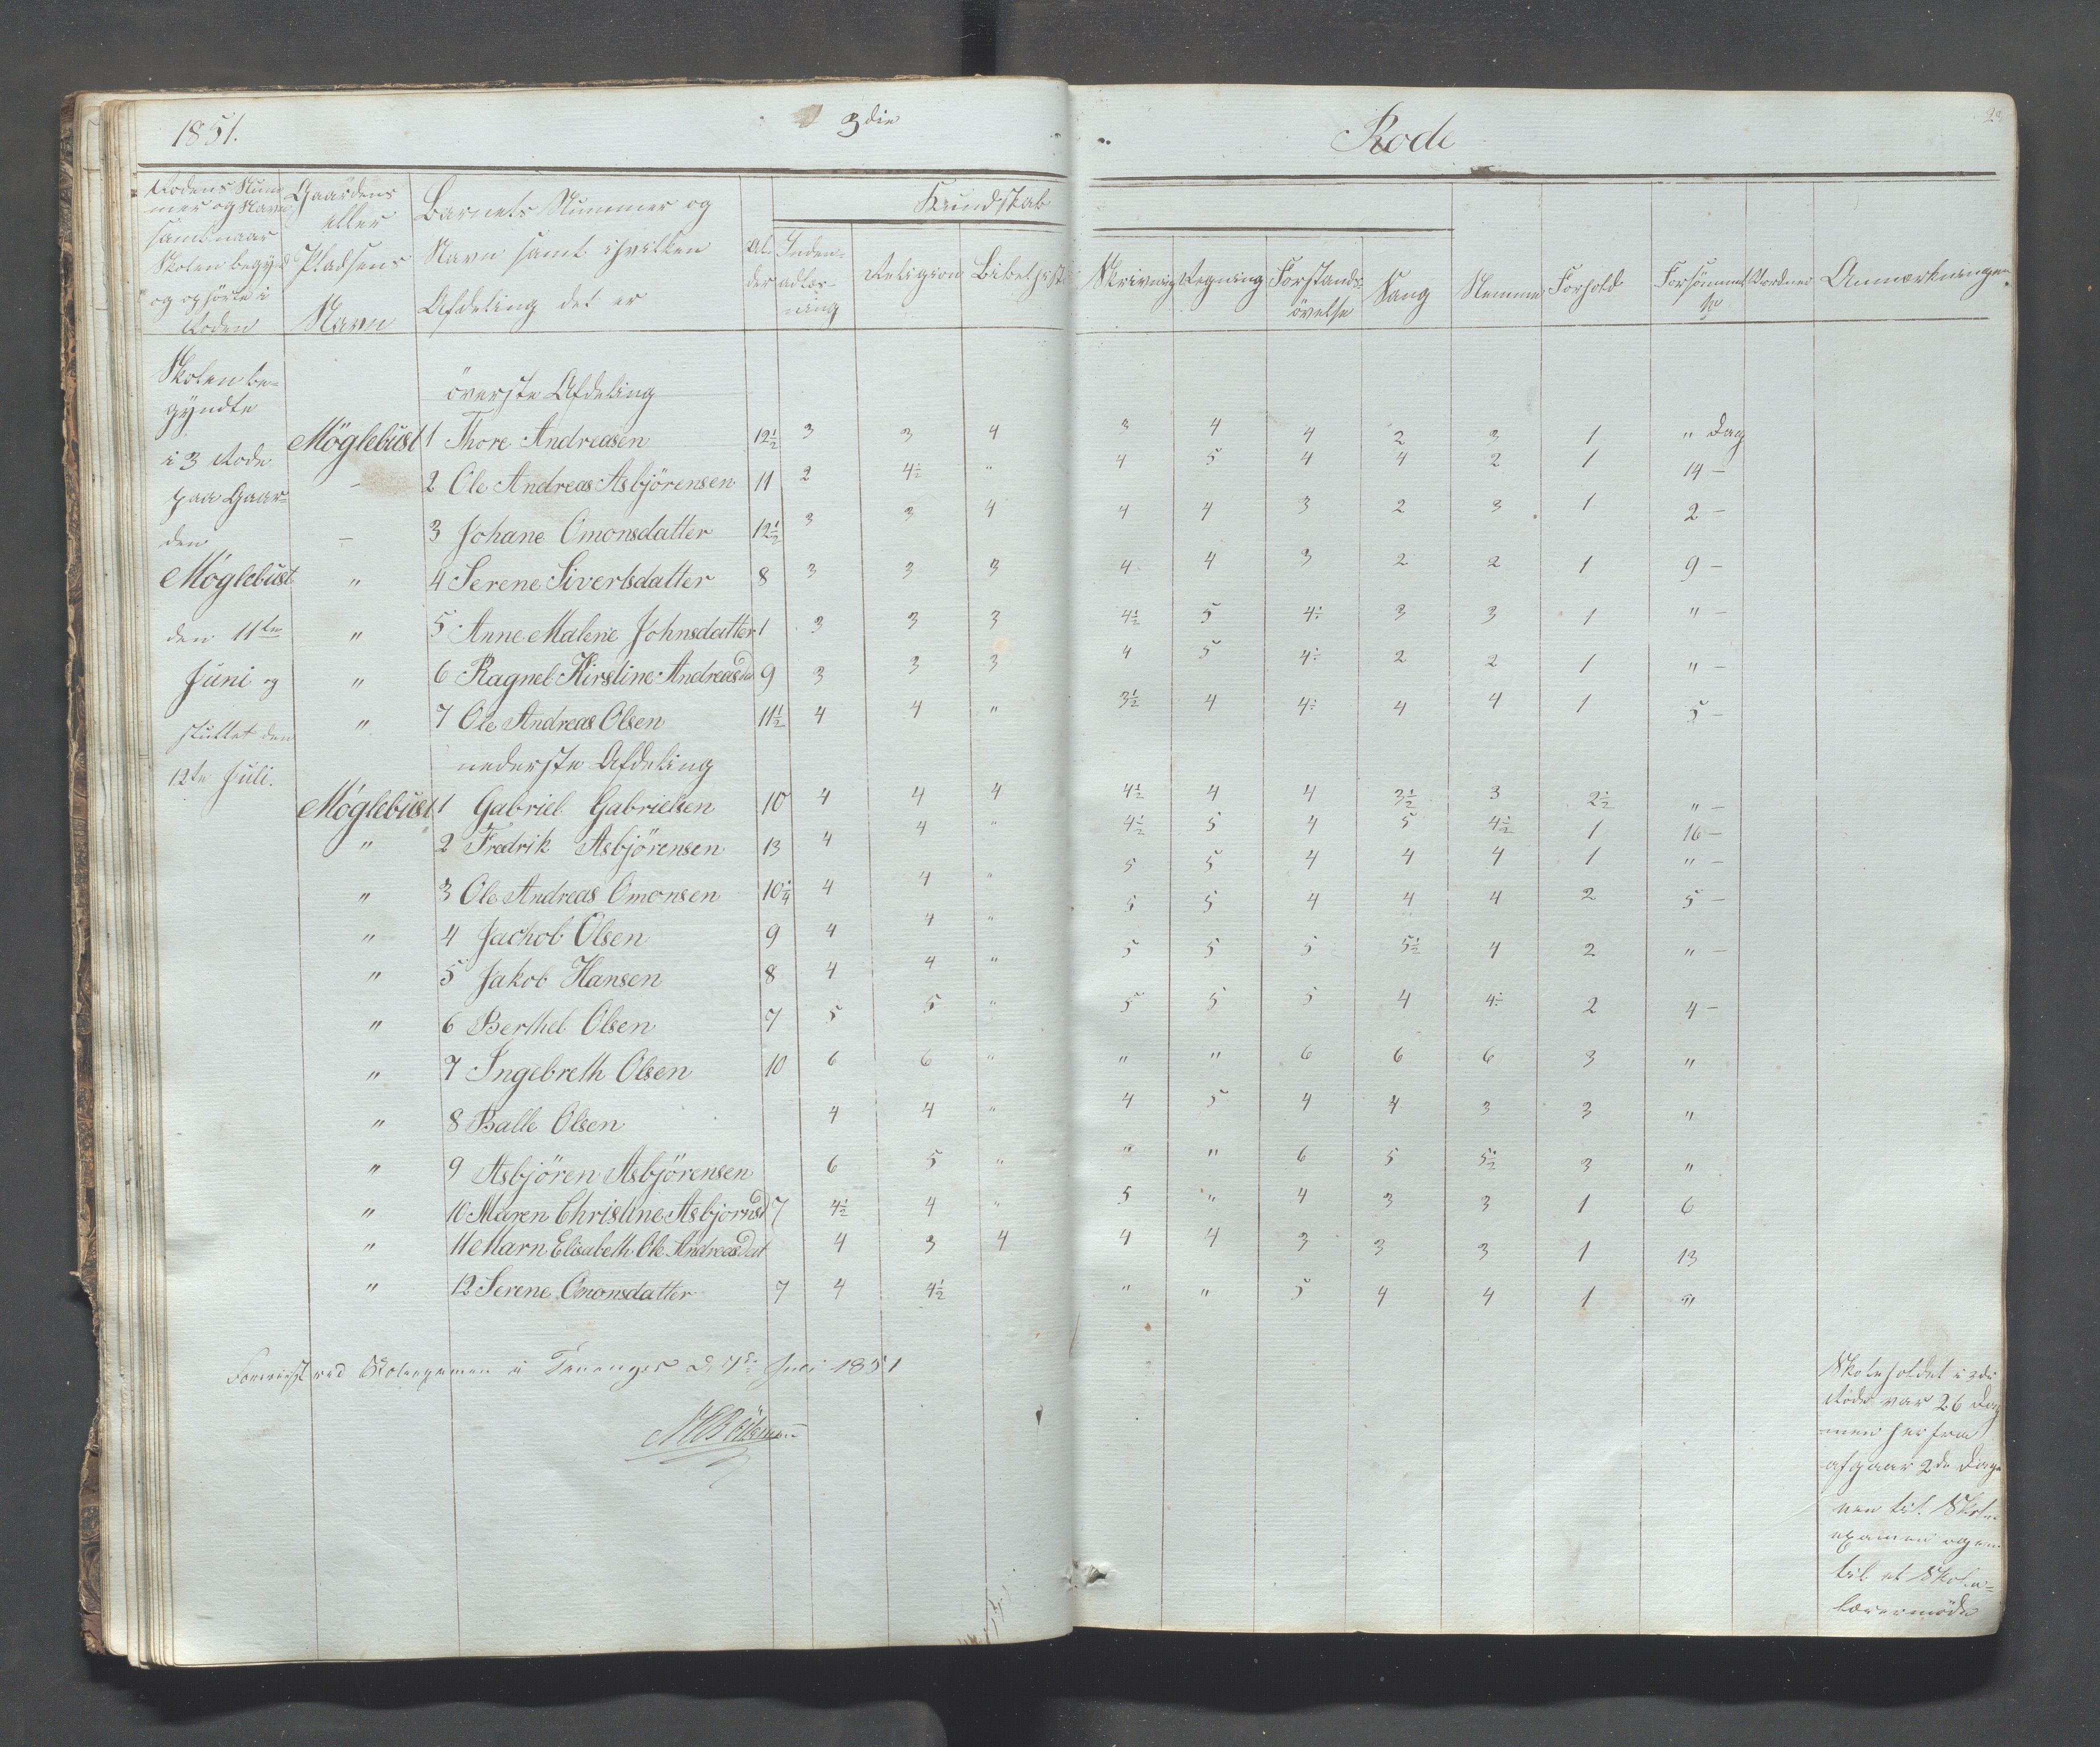 1851. 3die Rode
Rodens Num-
mer og Navn
samt naar
Skolen begynd
og ophörte i
Roden
Gaardens
eller
Pladsens
Navn
Barnets Nummer og
Navn samt i hvilken
Afdeling det er
Al-
der
Inden-
adlæs-
ning
Kundskab
Religion Bibelhist Skrivning Regning Forstands-
övelse
Sang Nemme Forhold Forsömmel
se
Anmærkninger
Skolen be-
gyndte
i 3 Rode
paa Gaar-
den
Möglebust
den 11te
Juni og
sluttet den
12te Juli.
överste Afdeling
Möglebust 1 Thore Andreasen 12½ 3 3 4 3 4 4 2 3 1 " Dag
- 2 Ole Andreas Asbjörensen 11 2 4½ " 4 5 4 4 2 1 14 -
- 3 Johane Omonsdatter 12½ 3 3 4 4 4 3 2 3 1 2 -
" 4 Serene Sivertsdatter 8 3 3 3 4 4 3 2 2 1 9 -
" 5 Anne Malene Johnsdatter 3 3 3 4½ 5 4÷ 3 3 1 " -
" 6 Ragnel Kirstine Andreasdat 9 3 3 3 4 5 4÷ 2 2 1 " -
" 7 Ole Andreas Olsen 11½ 4 4 " 3½ 4 4÷ 4 4 1 5 -
nederste Afdeling
Möglebust 1 Gabriel Gabrielsen 10 4 4 4 4½ 4 4 3½ 3 2½ " -
" 2 Fredrik Asbjörensen 13 4 4 " 4½ 5 4 5 4½ 1 16 -
" 3 Ole Andreas Omonsen 10¼ 4 4 " 5 5 4 4 4 1 " -
" 4 Jachob Olsen 9 4 4 " 5 5 4 4 4 2 5 -
" 5 Jakob Hansen 8 4 4 " 5 5 5 5½ 4 2 " -
" 6 Berthel Olsen 7 5 5 " 5 5 5 4 4÷ 2 4 -
" 7 Ingebreth Olsen 10 6 6 " " " 6 6 6 3 "
" 8 Balle Olsen 4 4 " 4 5 4 4 3 3 "
" 9 Asbjören Asbjörensen 6 5 " " " 6 5 5½ 3 "
" 10 Maren Christine Asbjornsd 7 4½ 4 " 5 " 4 3 3 1 6
" 11 Marn Elisabeth Ole Andreasdat 4 3 4 4 4 3 3 3 1 13
" 12 Serene Omonsdatter 7 4 4½ " " 5 4 4 1 "
Foreviist ved Skoleexamen i Tananger d. Juli 1851
Skoleholdet i 3die
Rode var 26 Dag
men her fra
afgaar 2de Dage
een til Skole-
examen og en
til et Skole-
lærermöde